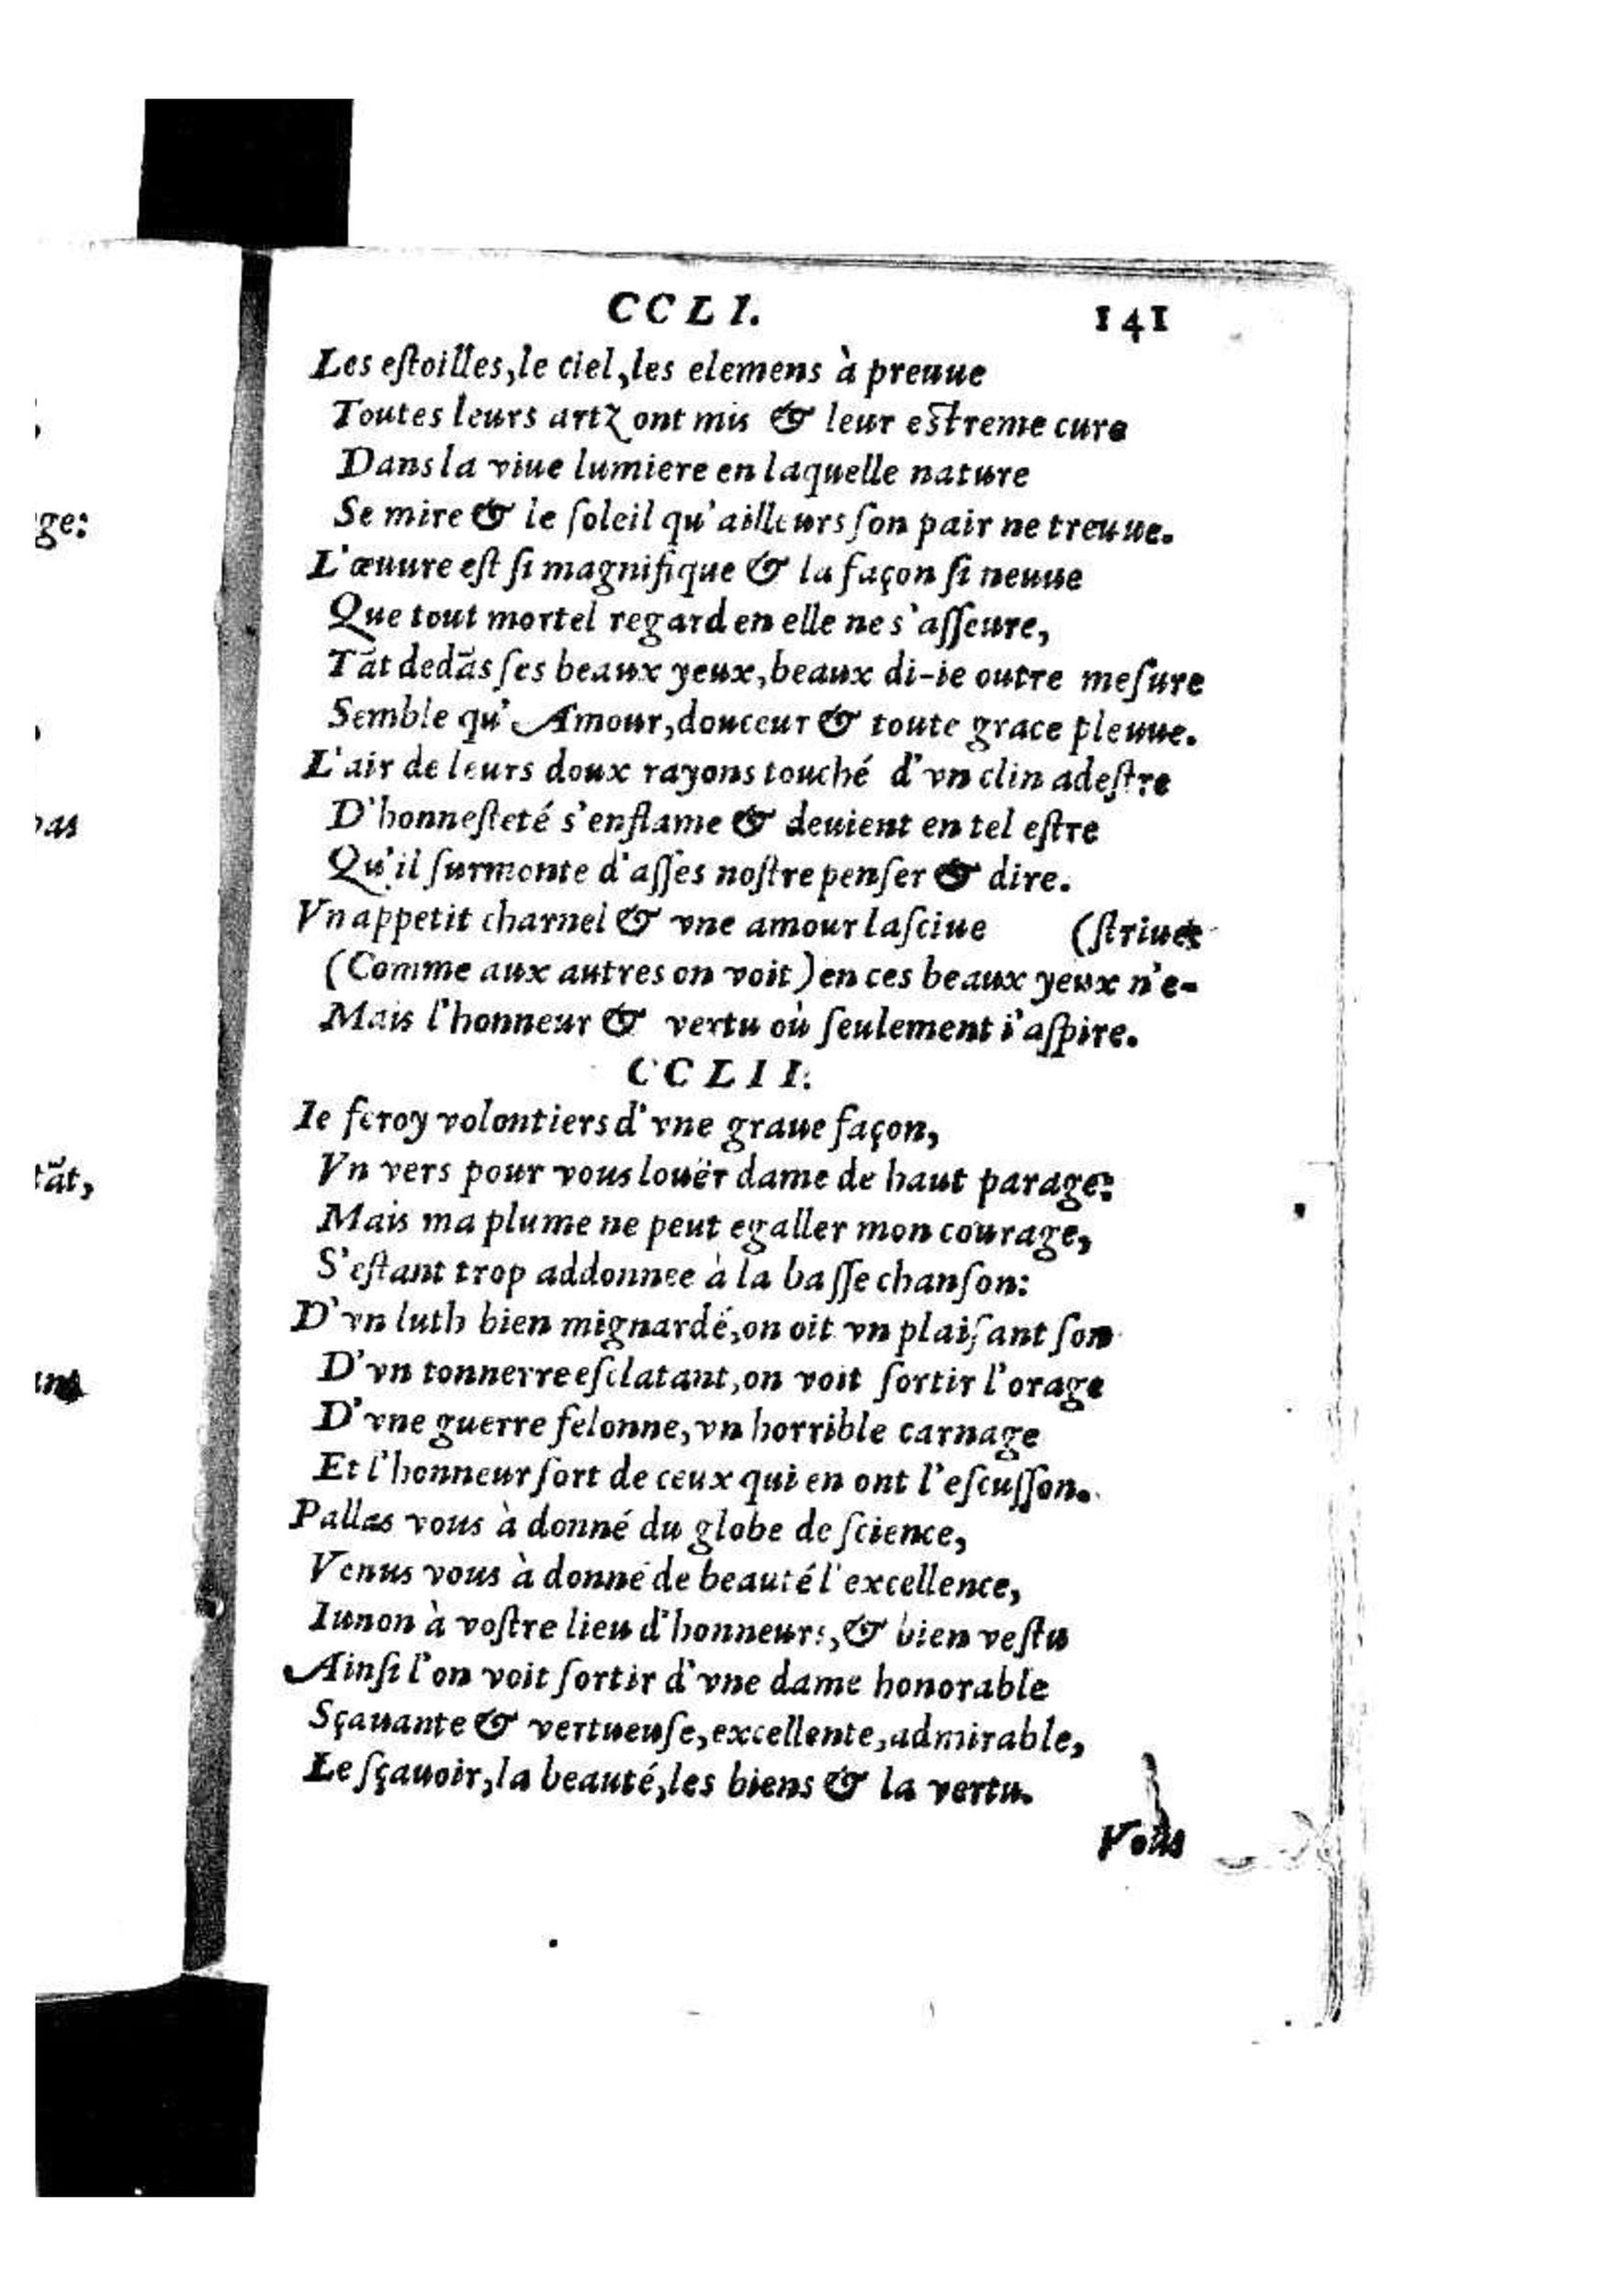 CCLI. 141
Les eſtoilles, le ciel, les elemens à preuue
Toutes leurs artz ont mis & leur eſtreme cure
Dans la viue lumiere en laquelle nature
Se mire & le ſoleil qu'ailleurs ſon pair ne treuue.
L'œuure eſt ſi magnifique & la façon ſi neuue
Que tout mortel regard en elle ne s'aſſeure,
Tāt dedās ſes beaux yeux, beaux di-ie outre meſure
Semble qu'Amour, douceur & toute grace pleuue.
L'air de leurs doux rayons touché d'vn clin adeſtre
D'honneſteté s'enflame & deuient en tel eſtre
Qu'il ſurmonte d'aſſes noſtre penſer & dire.
Vn appetit charnel & vne amour laſciue (ſtriue
(Comme aux autres on voit) en ces beaux yeux n'e-
Mais l'honneur & vertu où ſeulement i'aſpire.
CCLII.
Ie feroy volontiers d'vne graue façon,
Vn vers pour vous louër dame de haut parage:
Mais ma plume ne peut egaller mon courage,
S'eſtant trop addonnee à la baſſe chanſon:
D'vn luth bien mignardé, on oit vn plaiſant ſon
D'vn tonnerre eſclatant, on voit ſortir l'orage
D'vne guerre felonne, vn horrible carnage
Et l'honneur ſort de ceux qui en ont l'eſcuſſon.
Pallas vous à donné du globe de ſcience,
Venus vous à donné de beauté l'excellence,
Iunon à voſtre lieu d'honneurs, & bien veſtu
Ainſi l'on voit ſortir d'vne dame honorable
Sçauante & vertueuſe, excellente, admirable,
Le ſçauoir, la beauté, les biens & la vertu.
Vous